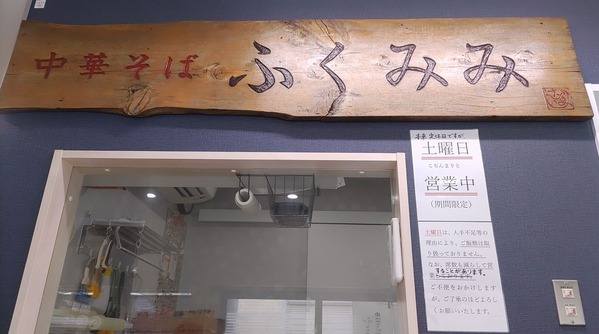 中華そば ふくみみ
本来 定休日ですが
土曜日
こぢんまりと
営業中
(期間限定)
土曜日は、人手不足等の
理由により、ご飯類は取
り扱っておりません。
なお、席数も減らして営
業することがあります。
ご不便をおかけします
が、ご了承のほどよろし
くお願いいたします。